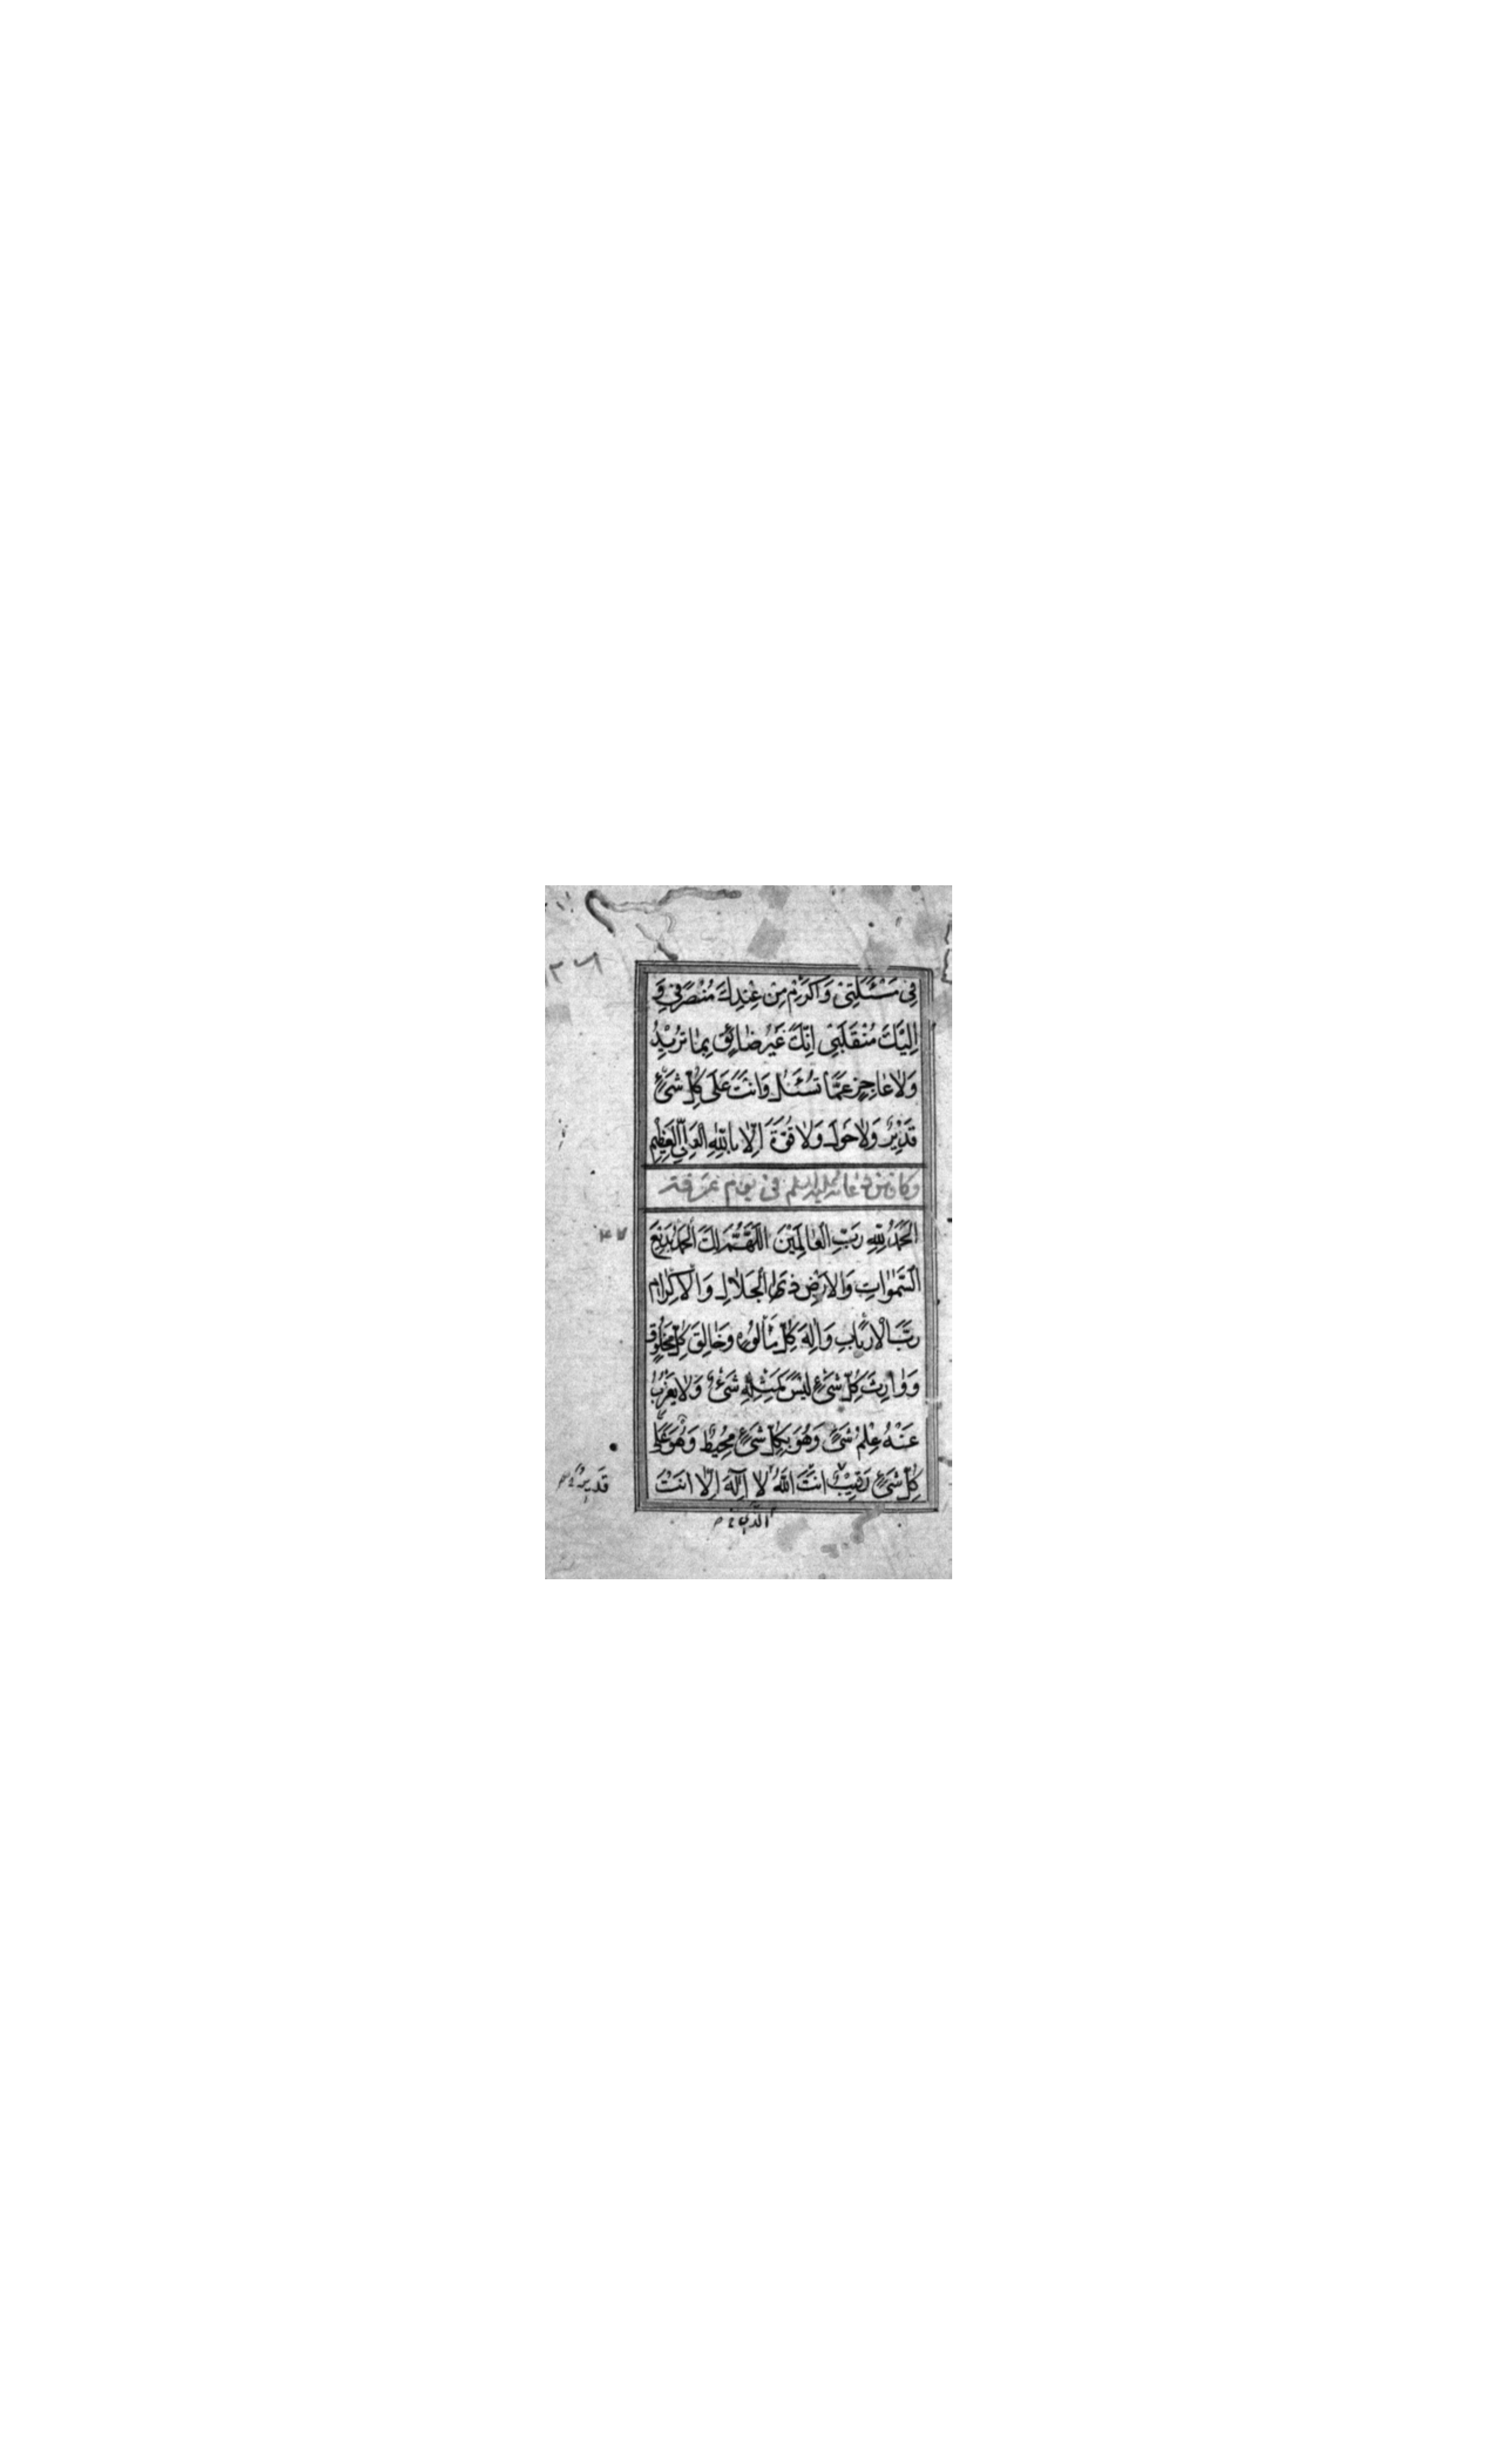 فِي مَسْئَلَتِيْ وَاَكْرِمْ مِنْ عِنْدِكَ مُنْصَرَفِيْ وَ
اِلَيْكَ مُنْقَلَبِيْ اِنَّكَ غَيْرُ ضَائِقٍ بِمَا تُرِيْدُ
وَلَا عَاجِزٍ عَمَّا تُسْئَلُ وَاَنْتَ عَلَى كُلِّ شَيْءٍ
قَدِيْرٌ وَلَا حَوْلَ وَلَا قُوَّةَ اِلَّا بِاللّٰهِ الْعَلِيِّ الْعَظِيْمِ
وكان من دعائه عليه السلم في يوم عرفة
اَلْحَمْدُ لِلّٰهِ رَبِّ الْعَالَمِيْنَ اَللّٰهُمَّ لَكَ الْحَمْدُ بَدِيْعَ
السَّمٰوَاتِ وَالْاَرْضِ ذَا الْجَلَالِ وَالْاِكْرَامِ
رَبَّ الْاَرْبَابِ وَاِلٰهَ كُلِّ مَاْلُوْهٍ وَخَالِقَ كُلِّ مَخْلُوْقٍ
وَوَارِثَ كُلِّ شَيْءٍ لَيْسَ كَمِثْلِهِ شَيْءٌ وَلَا يَعْزُبُ
عَنْهُ عِلْمُ شَيْءٍ وَهُوَ بِكُلِّ شَيْءٍ مُحِيْطٌ وَهُوَ عَلٰى
كُلِّ شَيْءٍ رَقِيْبٌ اَنْتَ اللّٰهُ لَا اِلٰهَ اِلَّا اَنْتَ
قَدِيرٌ